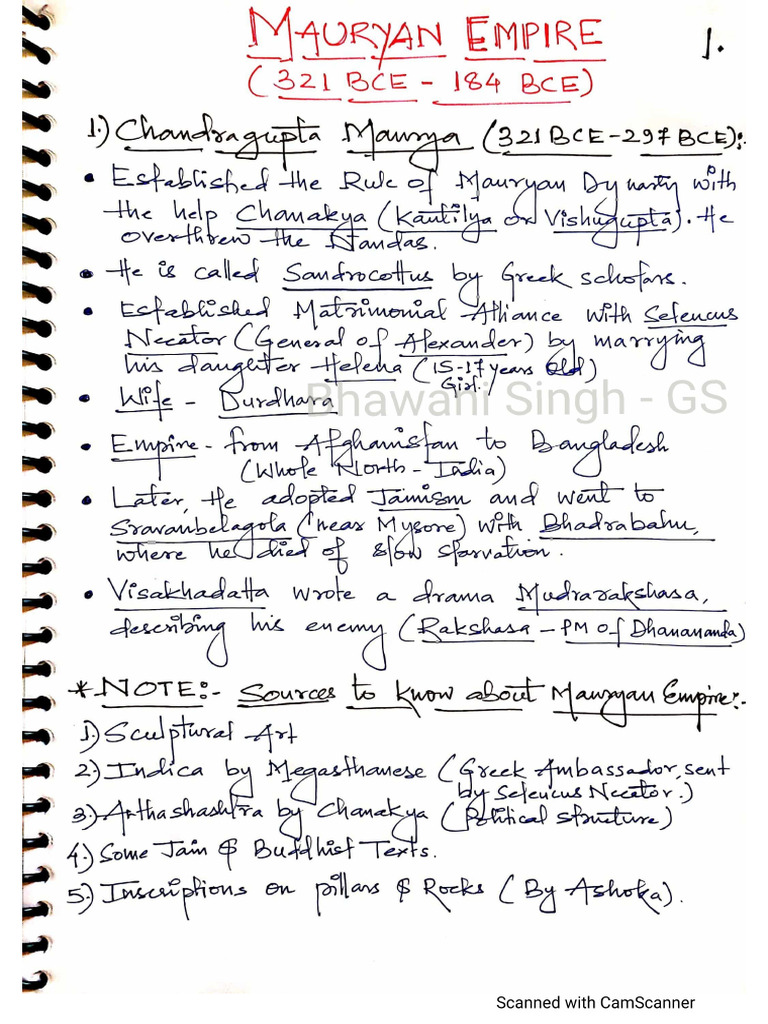 MAURYAN EMPIRE
1.
(321 BCE - 184 BCE)
1.) Chandragupta Maurya (321 BCE-297 BCE):-
• Established the Rule of Mauryan Dynasty with
the help Chanakya (Kautilya or Vishugupta). He
overthrew the Nandas.
• He is called Sandrocottus by Greek scholars.
• Established Matrimonial Alliance with Selencus
Necator (General of Alexander) by marrying
his daughter Helena (15-17 years Old)
Girl.
• Wife - Durdhara
Bhawani Singh - GS
• Empire - from Afghanistan to Bangladesh
(Whole North-India)
• Later, He adopted Jainism and went to
Sravanbelagola (near Mysore) with Bhadrabahu,
where he died of slow starvation.
• Visakhadatta wrote a drama Mudrarakshasa,
describing his enemy (Rakshasa - PM of Dhanananda)
* NOTE:- Sources to know about Mauryan Empire:-
1.) Sculptural Art
2.) Indica by Megasthanese (Greek Ambassador, sent
by Selencus Necator.)
3.) Arthashashtra by Chanakya (Political structure)
4.) Some Jain & Buddhist Texts.
5.) Inscriptions on pillars & Rocks (By Ashoka).
Scanned with CamScanner